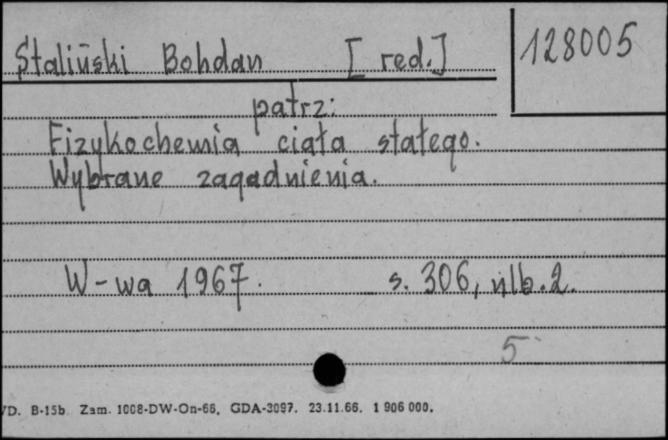 Staliński Bohdan [red.] 128005
patrz:
Fizykochemia ciała stałego.
Wybrane zagadnienia.
W-wa 1967. s. 306, nlb. 2.
5
VD. B-15b Zam. 1008-DW-On-66. GDA-3097. 23.11.66. 1 906 000.